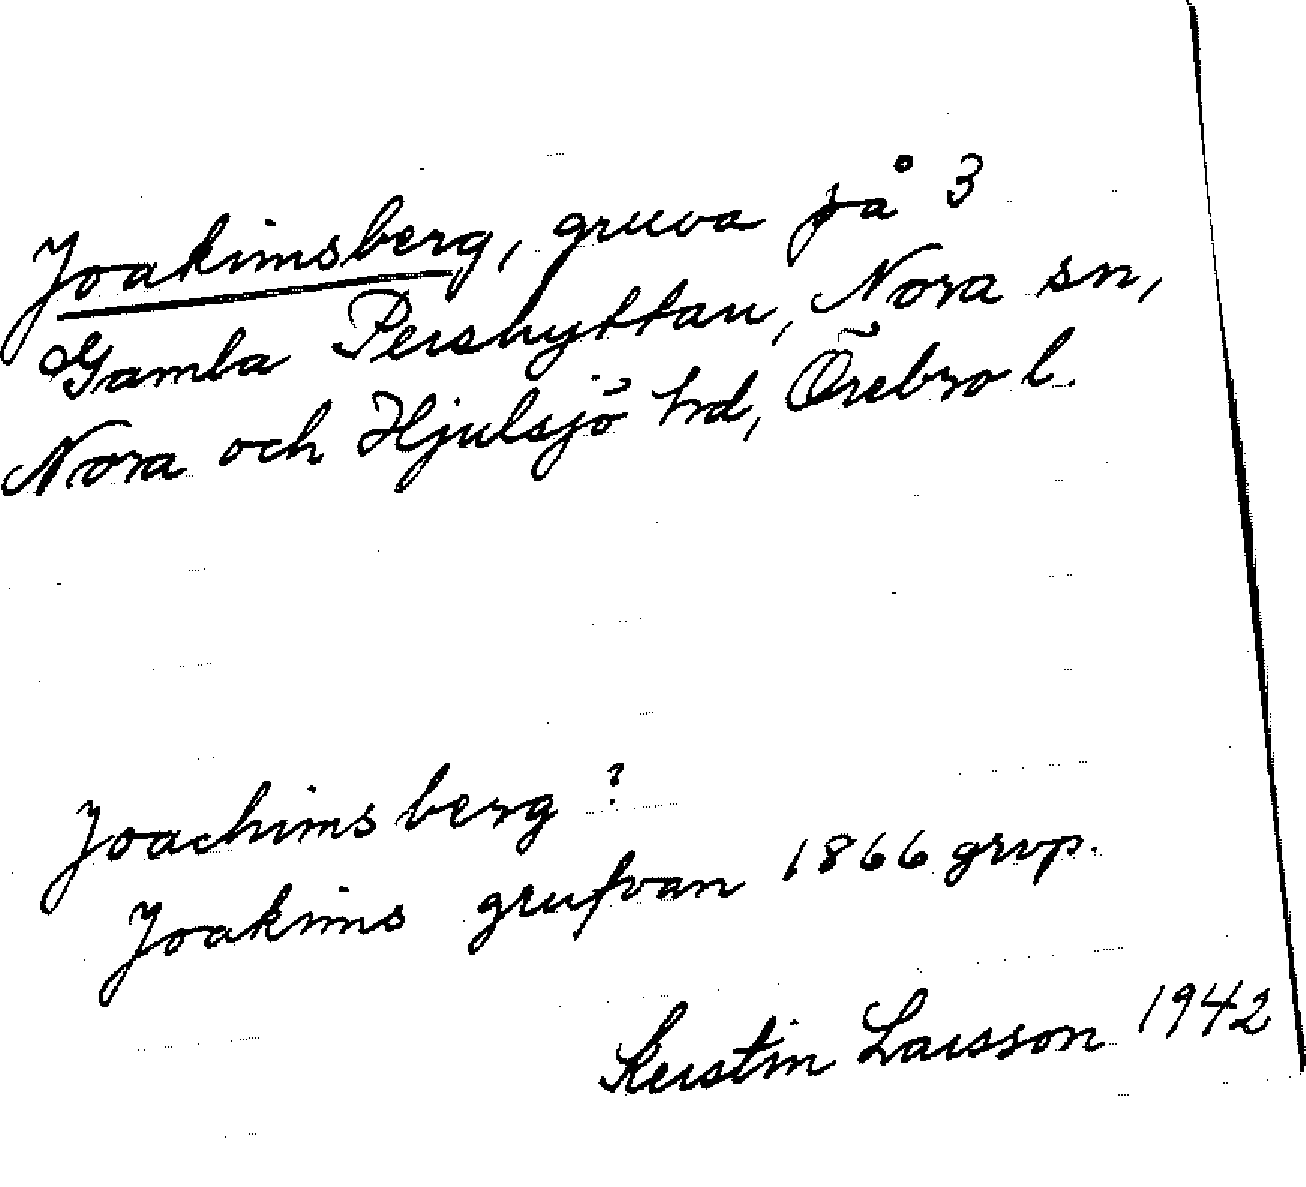 Joakimsberg, gruva på 3
Gamla Pershyttan, Nora sn,
Nora och Hjulsjö hd, Örebro l.
Joachimsberg?
Joakims grufvan 1866 grvp.
Kerstin Larsson 1942